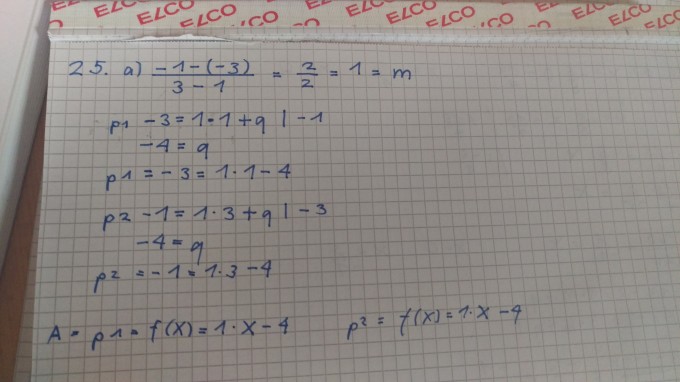 ELCO ELCO ELCO ELCO ELCO
25. a) -1-(-3) / 3-1 = 2/2 = 1 = m
p1 -3 = 1·1+q | -1
-4 = q
p1 = -3 = 1·1-4
p2 -1 = 1·3+q | -3
-4 = q
p2 = -1 = 1·3-4
A = p1 = f(x) = 1·x-4
p2 = f(x) = 1·x-4